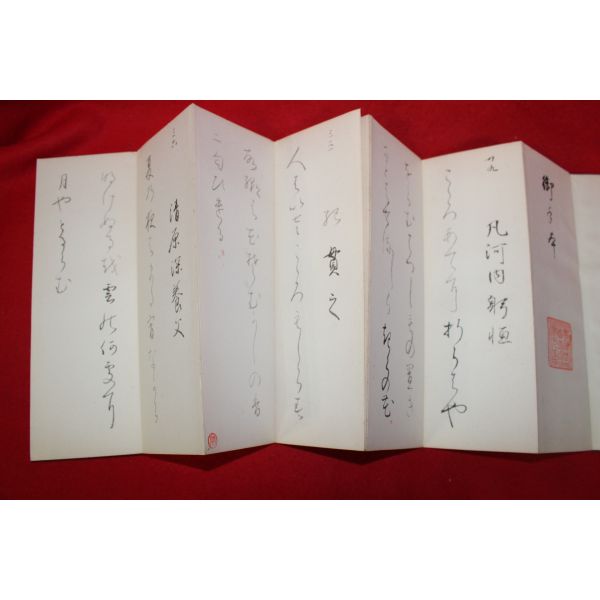 御手本
廿九
凡河内躬恒
こゝろあて耳折らはや
をらむはつしもの置き
まとはせるしらきくの花
三三
紀貫之
人はいさこゝろもしらす
ふる
さとは
花そむかしの香
二匂ひける
三六
清原深養父
夏の夜はまた宵なから
明けぬる越雲の何處耳
月やとるらむ